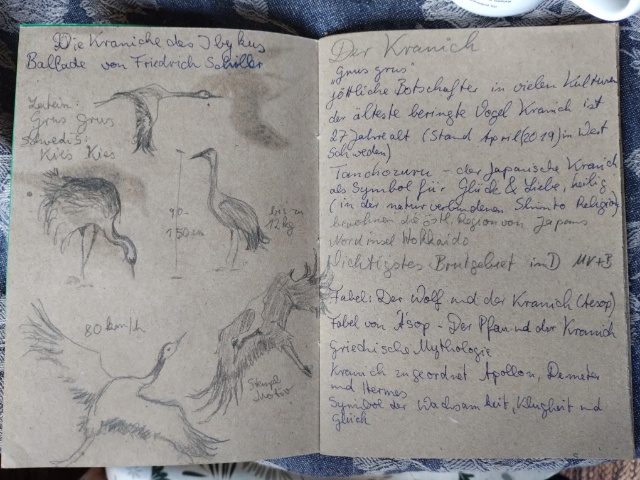 Die Kraniche des Ibykus
Ballade von Friedrich Schiller
Latein:
Grus Grus
Schwedis:
Kies Kies
90-
150 cm
bis zu
12 kg
80 km/h
Stempel
Motiv
Der Kranich
"Grus grus"
göttliche Botschafter in vielen Kulturen
der älteste beringte Vogel Kranich ist
27 Jahre alt (Stand April (2019) in West
Schweden)
Tanchozuru - der Japanische Kranich
als Symbol für Glück & Liebe, heilig
(in der naturverbundenen Shinto Religion)
bewohnen die östl. Region von Japans
Nordinsel Hokkaido
Wichtigstes Brutgebiet in D MV+B
Fabel: Der Wolf und der Kranich (Aesop)
Fabel von Äsop - Der Pfau und der Kranich
Griechische Mythologie
Kranich zugeordnet Apollon, Demeter
und Hermes
Symbol der Wachsamkeit, Klugheit und
Glück